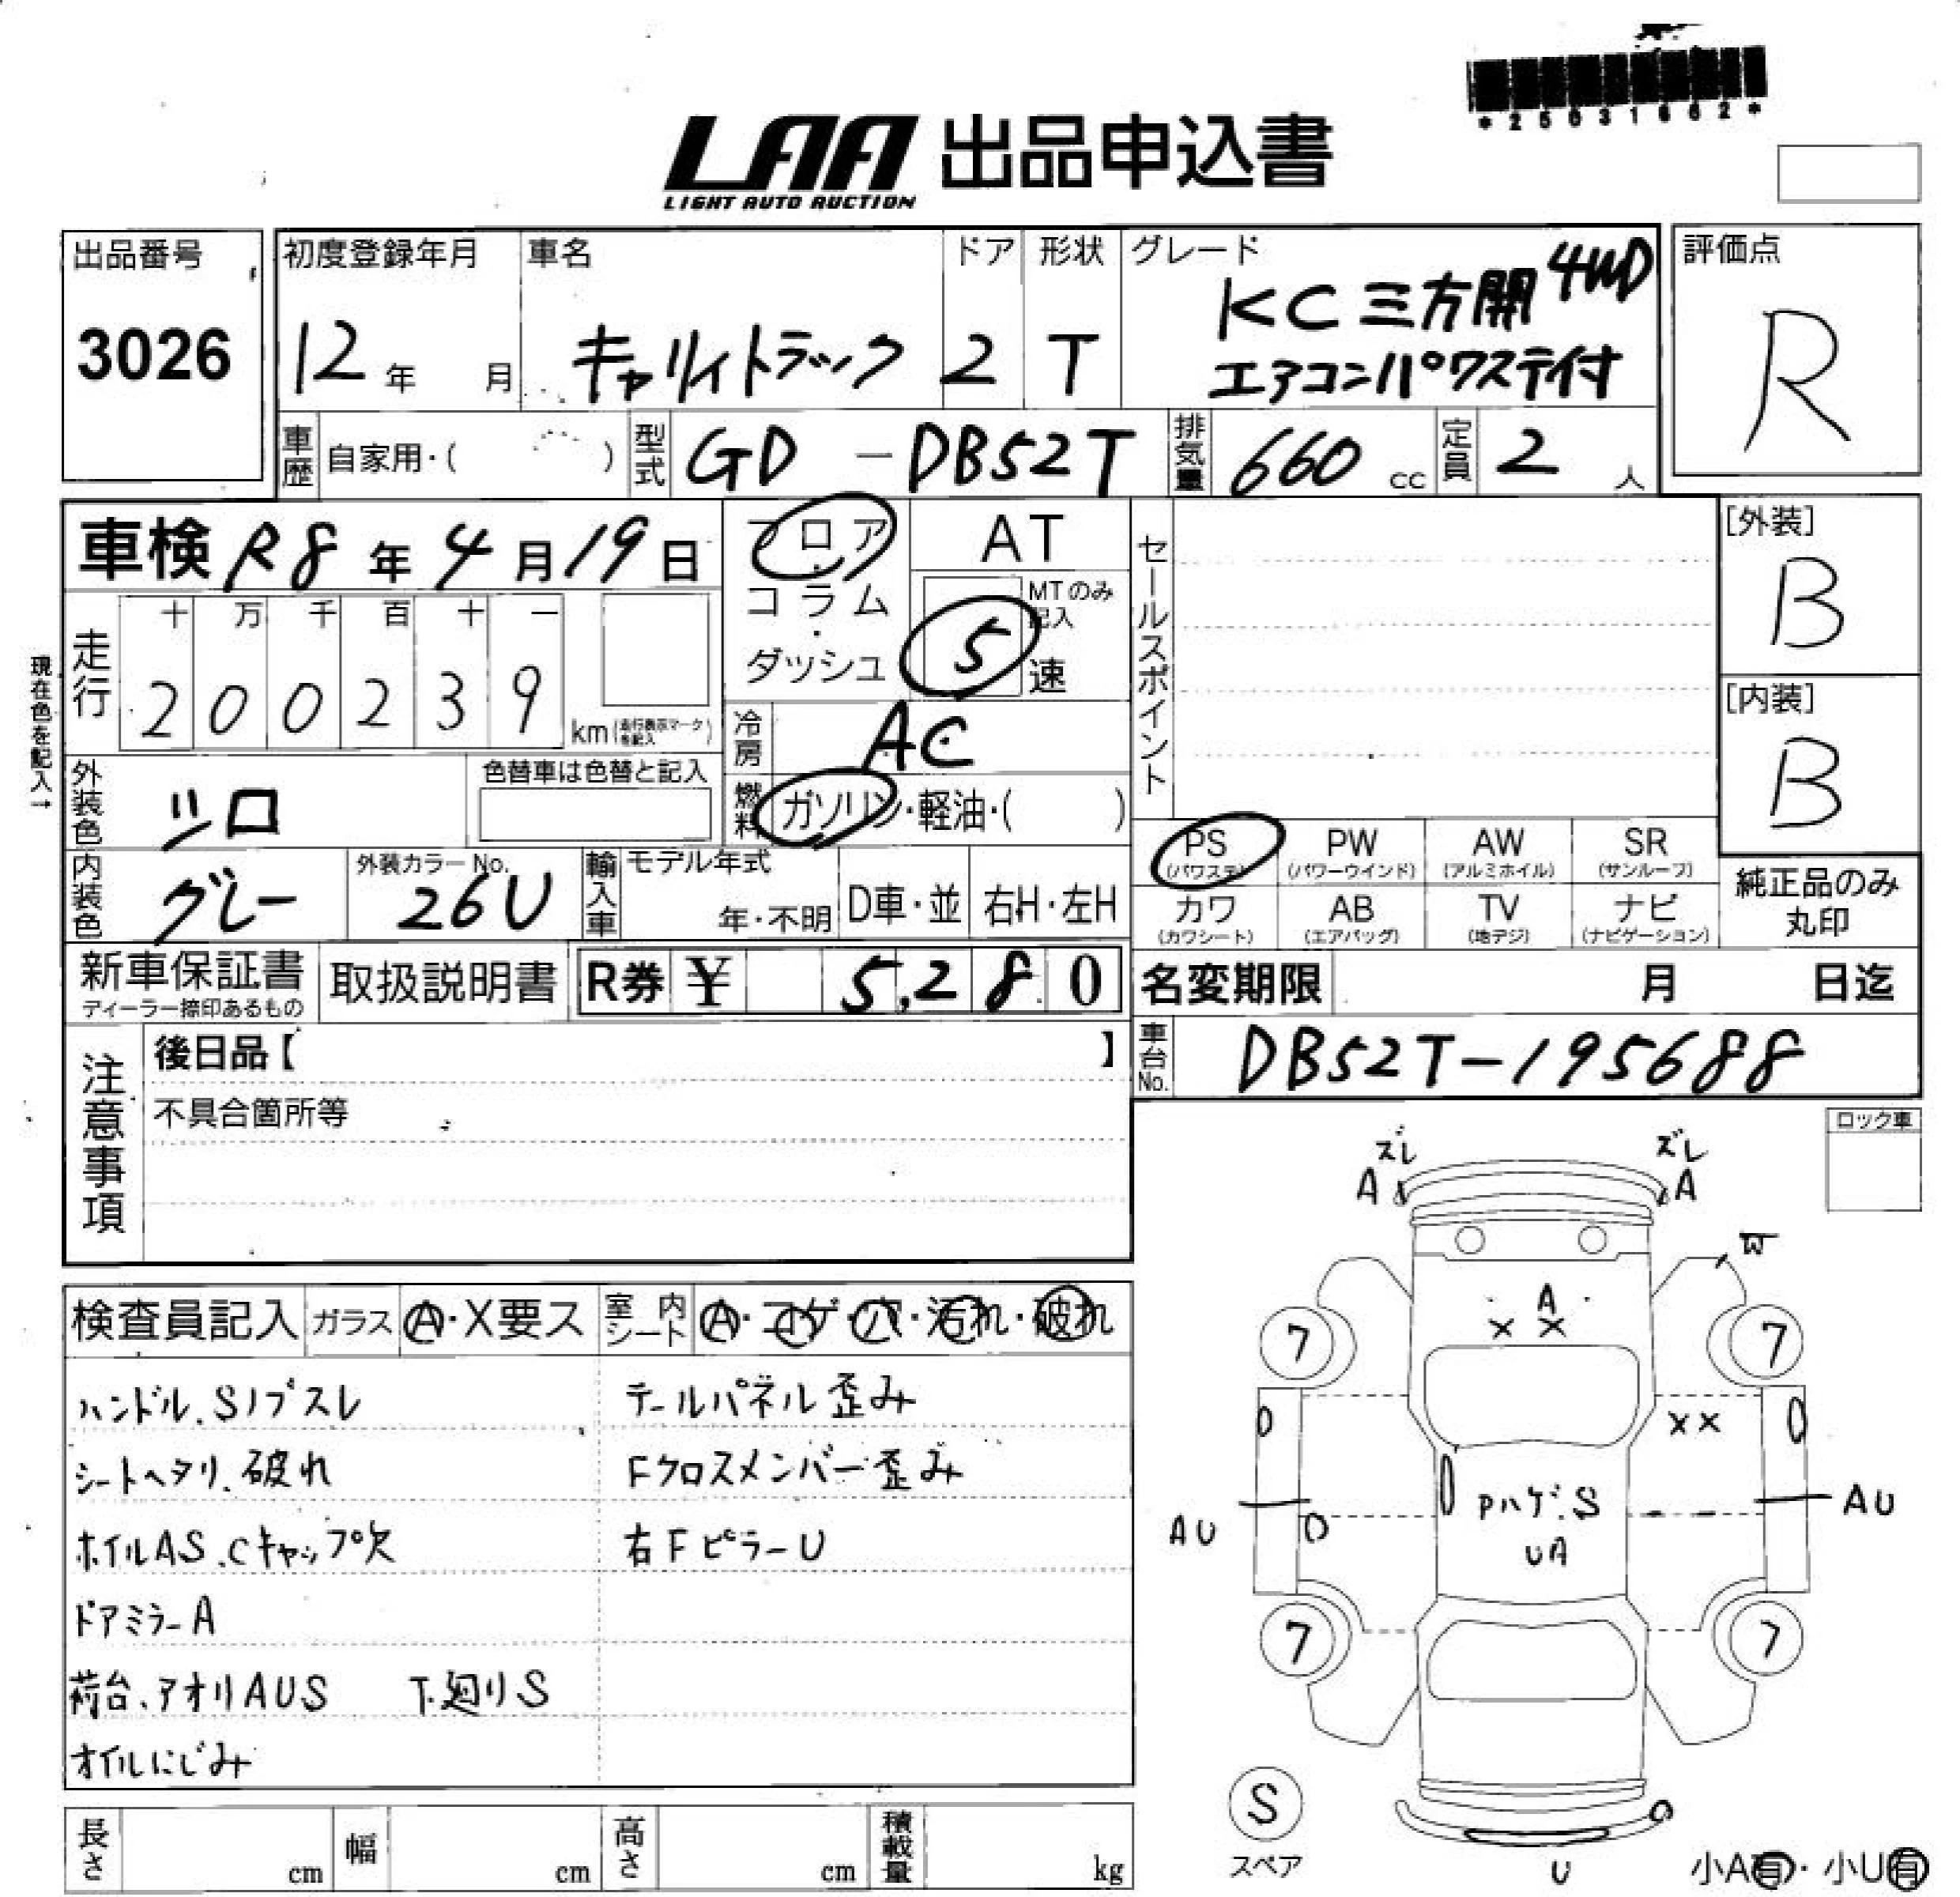 *25031662*
LAA 出品申込書
LIGHT AUTO AUCTION
出品番号
3026
初度登録年月
12年 月
車名
キャリイトラック
ドア
2
形状
T
グレード
KC三方開 4WD
エアコンパワステ付
評価点
R
車歴 自家用・( )
型式 GD-DB52T
排気量 660cc
定員 2人
車検 R8年4月19日
フロア
コラム
・
ダッシュ
AT
MTのみ記入
5速
セールスポイント
[外装]
B
[内装]
B
現在色を記入→
走行
十 万 千 百 十 一
2 0 0 2 3 9
km(走行表示マークを記入)
冷房 AC
外装色 シロ
色替車は色替と記入
燃料 ガソリン・軽油・( )
内装色 グレー
外装カラーNo.
26U
輸入車
モデル年式
年・不明
D車・並
右H・左H
PS (パワステ)
PW (パワーウインド)
AW (アルミホイル)
SR (サンルーフ)
カワ (カワシート)
AB (エアバッグ)
TV (地デジ)
ナビ (ナビゲーション)
純正品のみ
丸印
新車保証書
ディーラー捺印あるもの
取扱説明書
R券 ¥ 5,280
名変期限 月 日迄
注意事項
後日品【 】
不具合箇所等
車台No. DB52T-195688
ロック車
検査員記入
ガラス A・X要ス
室内シート A・コゲ・穴・汚れ・破れ
ハンドル.Sノブスレ
シートヘタリ.破れ
ホイルAS.Cキャップ欠
ドアミラーA
荷台、アオリAUS 下廻りS
オイルにじみ
テールパネル歪み
Fクロスメンバー歪み
右FピラーU
ズレ
A
ズレ
A
W
A
××
7
7
××
PハゲS
UA
AU
AU
7
7
S
スペア
U
小A有・小U有
長さ cm
幅 cm
高さ cm
積載量 kg